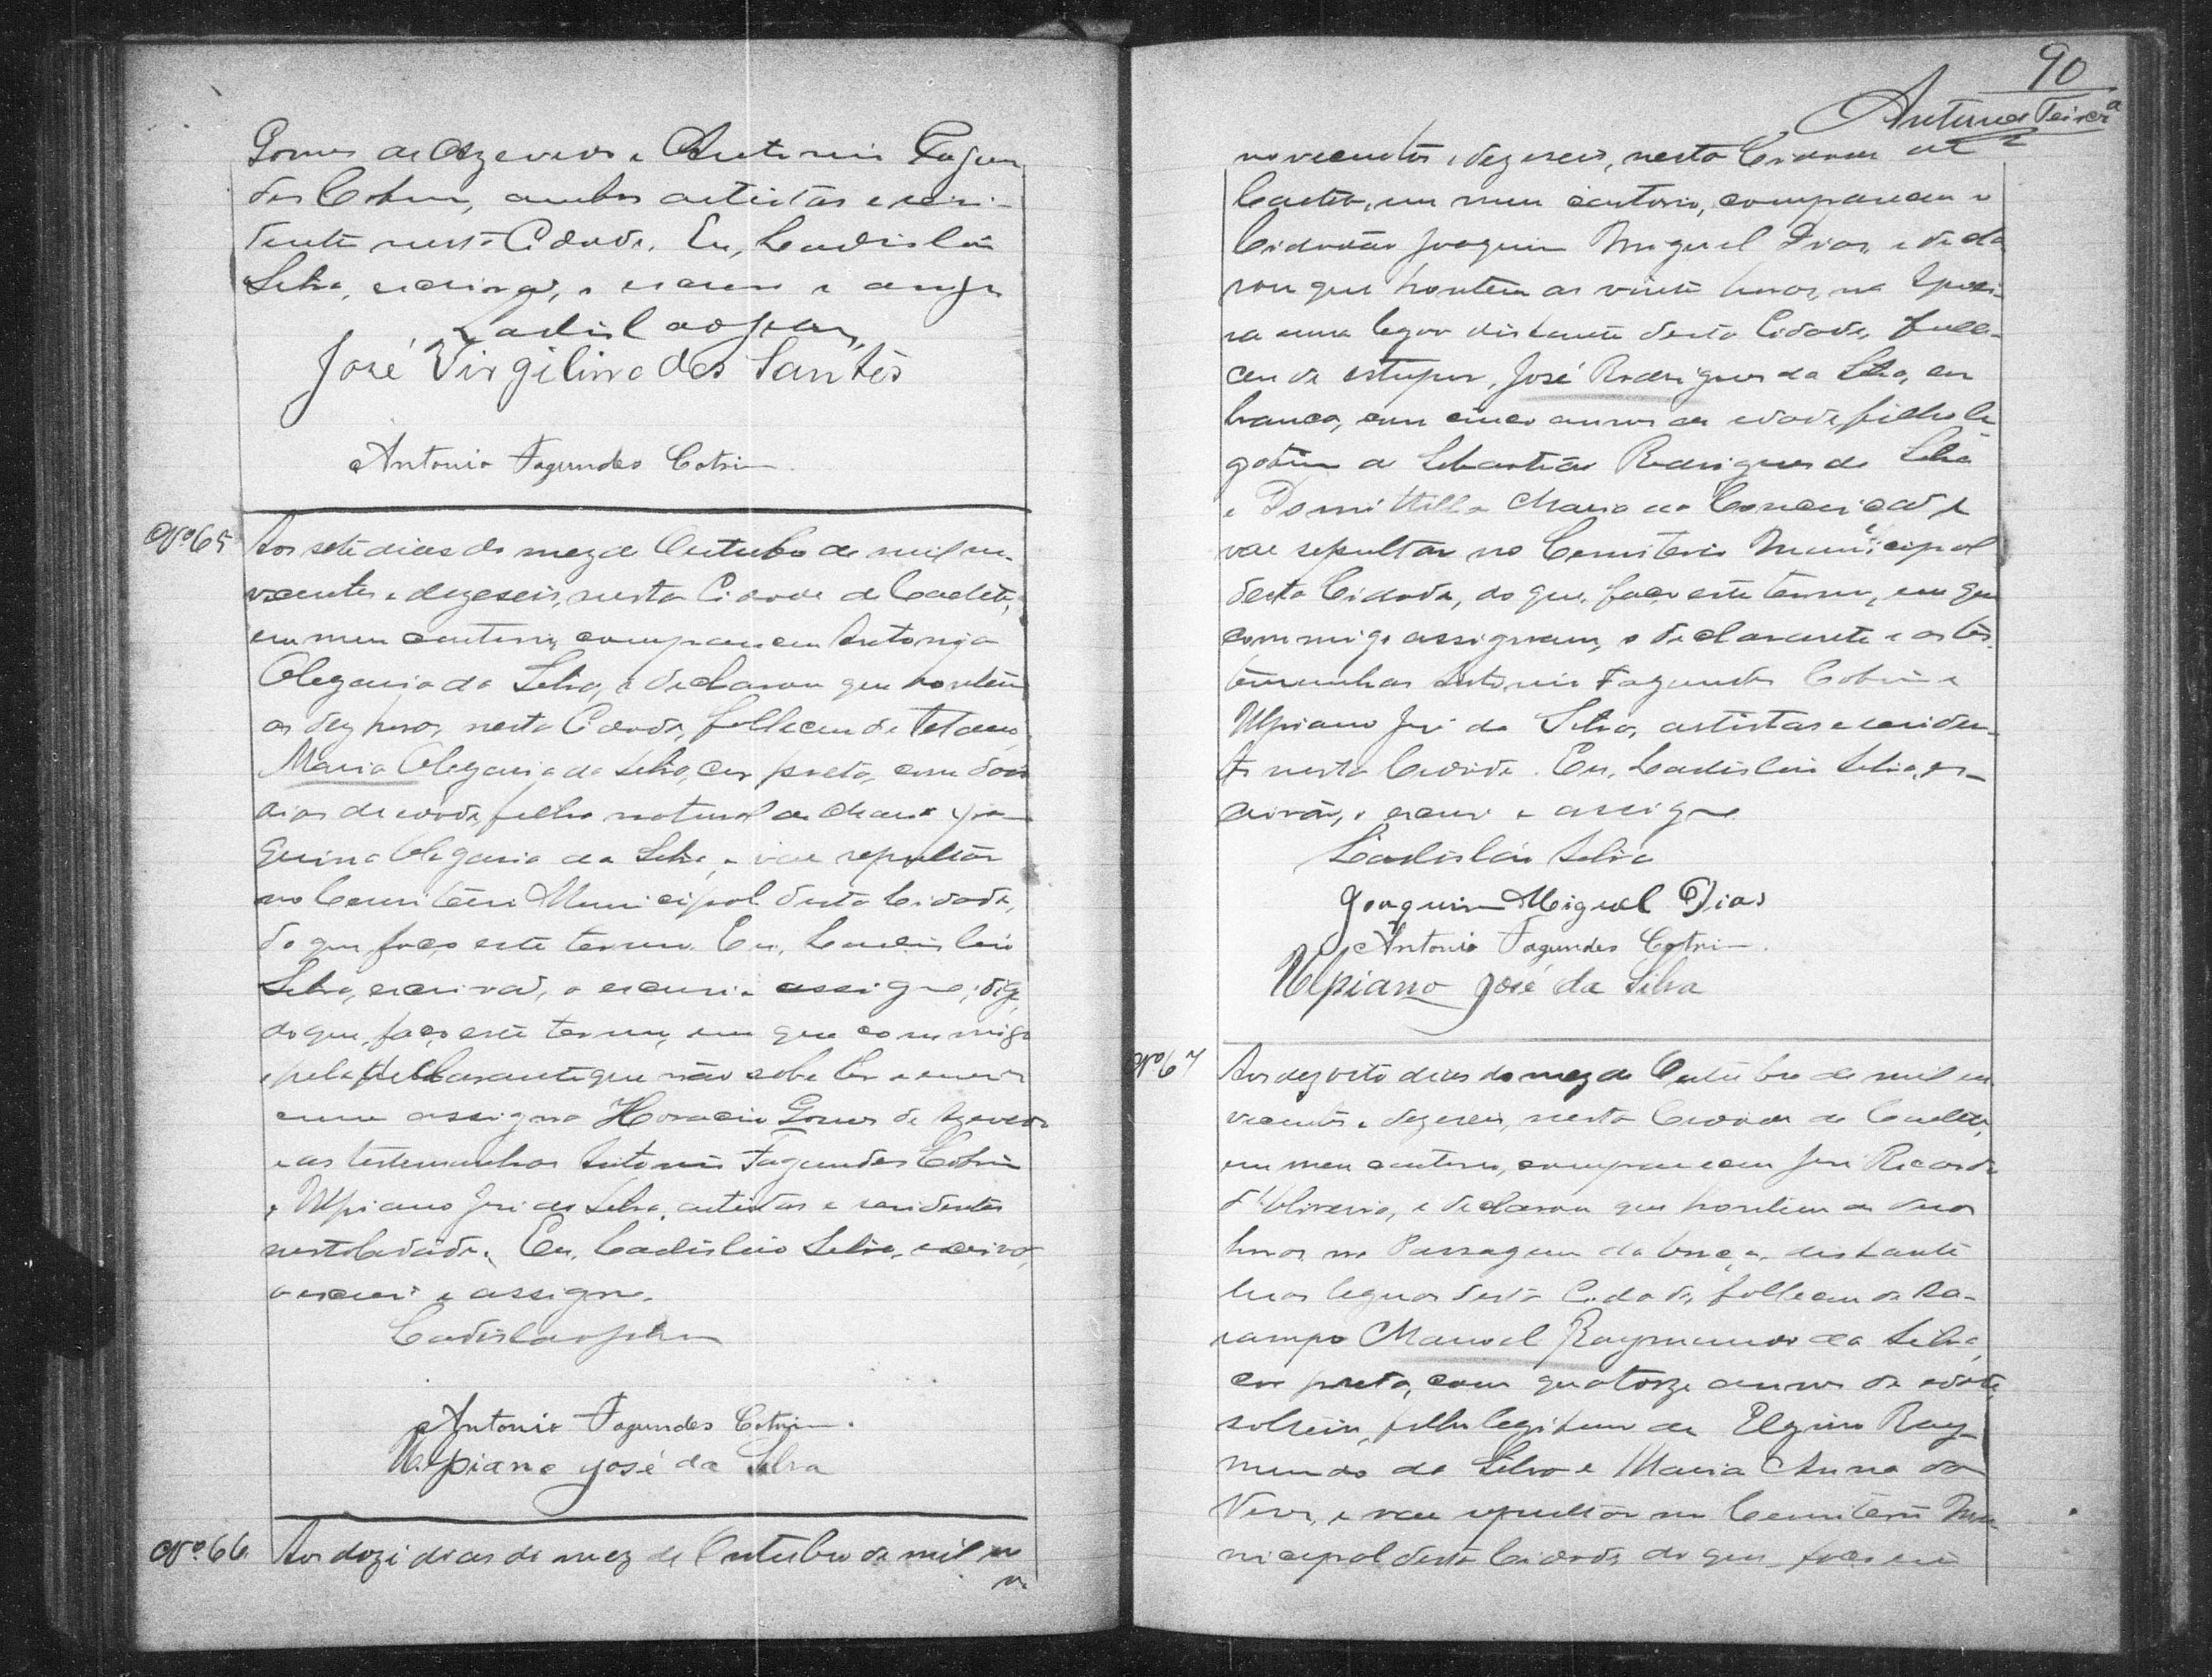 Gomes de Azevedo e Antonio Fagun
des Cotrim, ambos artistas e resi-
dente nesta Cidade. Eu, Ladisláo
Silva, escrivão, o escrevi e assigno
Ladisláo Silva
José Virgilino dos Santos
Antonio Fagundes Cotrim
Nº 65 Aos sete dias do mez de Outubro de mil no-
vecentos e dezeseis, nesta Cidade de Caeteté,
em meu cartorio, compareceu Antonia
Olegaria da Silva, e declarou que hontem
as dez horas, nesta Cidade, falleceu de tetano,
Maria Olegaria da Silva, cor preta, com dois
dias de edade, filha natural de Maria Joa
quina Olegaria da Silva, e vae sepultar
no Cemiterio Municipal desta Cidade,
do que faço este termo. Eu, Ladisláo
Silva, escrivão, o escrevi e assigno; digo,
do que, faço este termo, em que commigo
e pela declarante que não sabe ler e escre
ver assigna Horacio Gomes de Azevedo
e as testemunhas Antonio Fagundes Cotrim
e Ulpiano José da Silva, artistas e residentes
nesta Cidade. Eu, Ladisláo Silva, escrivão,
o escrevi e assigno.
Ladisláo Silva
Antonio Fagundes Cotrim.
Ulpiano José da Silva
Nº 66 Aos doze dias do mez de Outubro de mil no
90
Antunes Teixeira
novecentos e dezeseis, nesta Cidade de
Caeteté, em meu cartorio, compareceu o
Cidadão Joaquim Miguel Dias, e decla
rou que hontem as vinte horas, na
ra uma legoa distante desta Cidade, falle-
ceu de estupor, José Rodrigues da Silva, cor
branca, com cinco annos de edade, filho le
gitimo de Sebastião Rodrigues da Silva
e Domithilla Maria da Conceição e
vae sepultar no Cemiterio Municipal
desta Cidade, do que, faço este termo, em que
commigo assignam, o declarante e as tes
temunhas Antonio Fagundes Cotrim e
Ulpiano José da Silva, artistas e residen-
tes nesta Cidade. Eu, Ladisláo Silva, es-
crivão, o escrevi e assigno
Ladisláo Silva
Joaquim Miguel Dias
Antonio Fagundes Cotrim.
Ulpiano José da Silva
Nº 67 Aos dezoito dias do mez de Outubro de mil no
vecentos e dezeseis, nesta Cidade de Caeteté,
em meu cartorio, compareceu José Ricardo
d'Oliveira, e declarou que hontem as duas
horas, na Passagem da distante
duas legoas desta Cidade, falleceu de sa-
rampo Manoel Raymundo da Silva,
cor preta, com quatorze annos de edade,
solteiro, filho legitimo de Elzino Ray-
mundo da Silva e Maria Anna das
Neves, e vae sepultar no Cemiterio Mu-
nicipal desta Cidade, do que, faço este